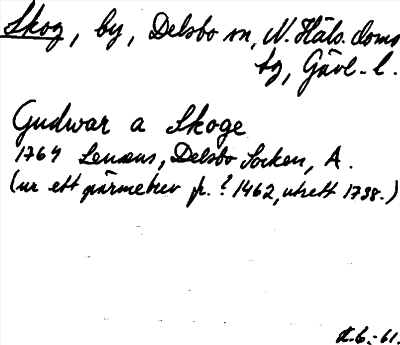 Skog, by, Delsbo sn, N. Häls. doms
sg, Gävl. l.
Gudwar a Skoge
1764 Lenæus, Delsbo Socken, A.
(ur ett pärmebrev fr. ? 1462, utrett 1738.)